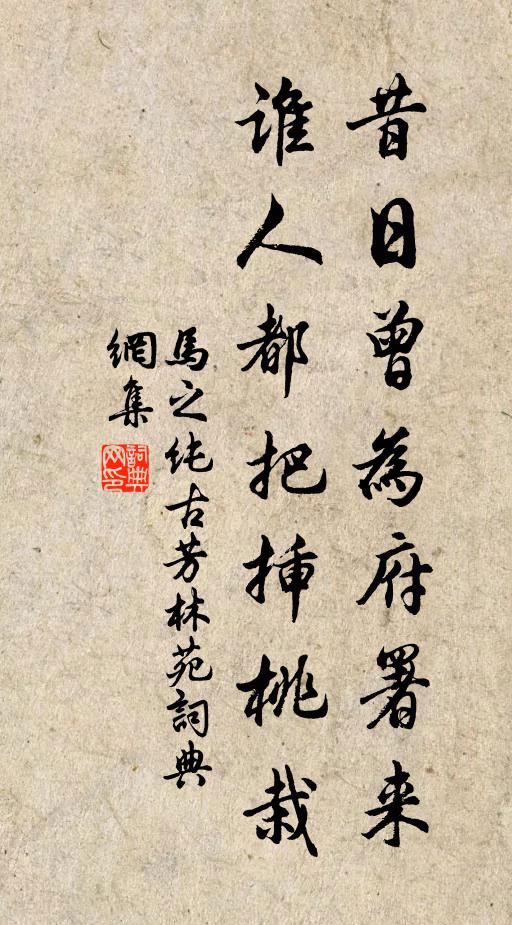 昔日曾為府署来
谁人都把揷桃栽
馬之纯古芳林苑詞典
網集
詞典
网印